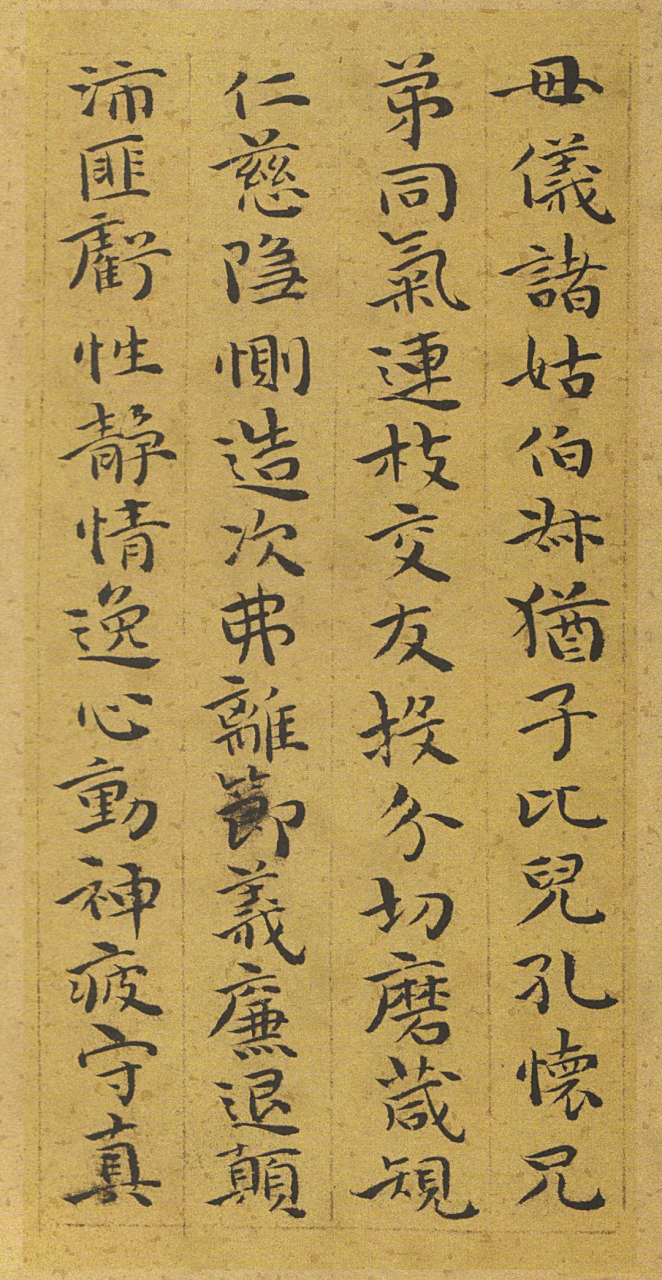 母儀諸姑伯叔猶子比兒孔懷兄
弟同氣連枝交友投分切磨葴規
仁慈隐惻造次弗離節義廉退顛
沛匪虧性静情逸心動神疲守真